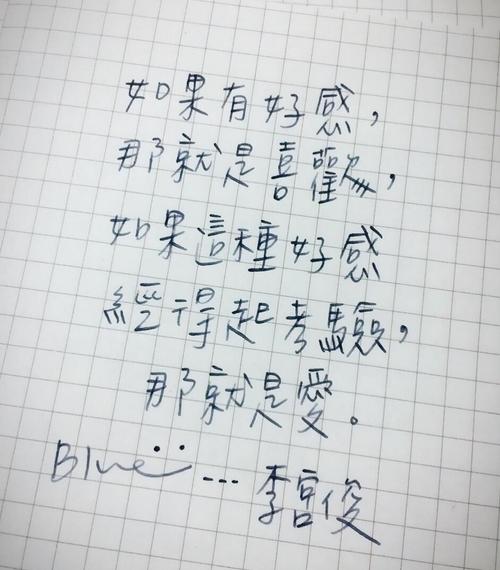 如果有好感，
那就是喜歡，
如果這種好感
經得起考驗，
那就是愛。
Blue ... 李宮俊